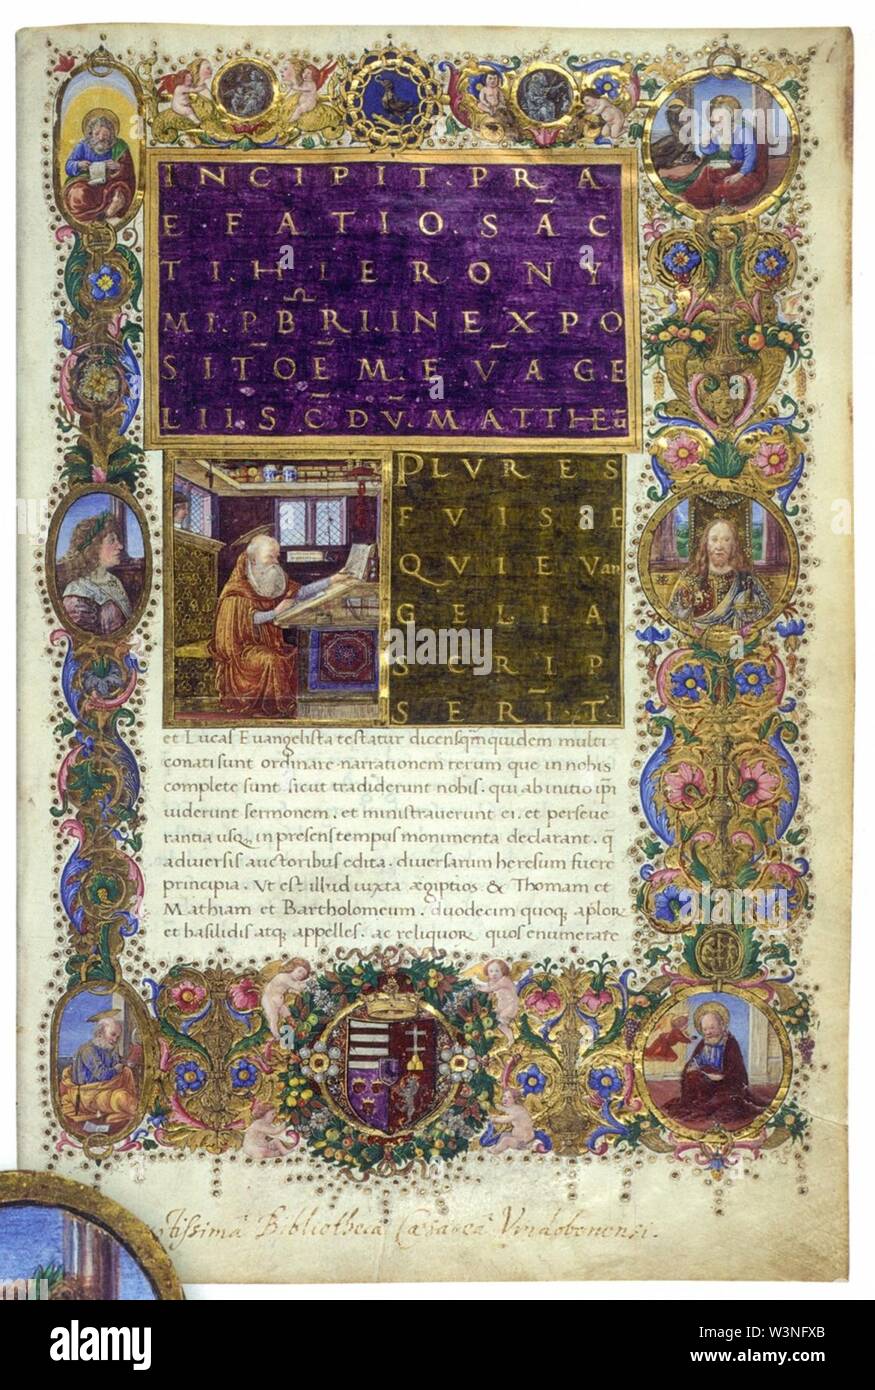 INCIPIT. PRA
EFATIO. SAC
TI. HIERONY
MI. PBRI. IN EXPO
SITOEM. EVAGE
LII. SCDV. MATTHEU
PLVRES
FVISSE
QVI EVan
GELIA
SCRIP
SERIT.
et Lucas Euangelista testatur dicens. qm quidem multi
conati sunt ordinare narrationem rerum que in nobis
complete sunt sicut tradiderunt nobis. qui ab initio ipsi
uiderunt sermonem. et ministrauerunt ei. et perseue
rantia usq, in presens tempus monimenta declarant. q
a diuersis auctoribus edita. diuersarum heresum fuere
principia. Vt est illud iuxta ægiptios & Thomam et
Mathiam et Bartholomeum. duodecim quoq, aplor
et basilidis atq, appelles. ac reliquor quos enumerare
Bibliotheca Cæsarea Vindobonensi.
alamy
Image ID: W3NFXB
www.alamy.com